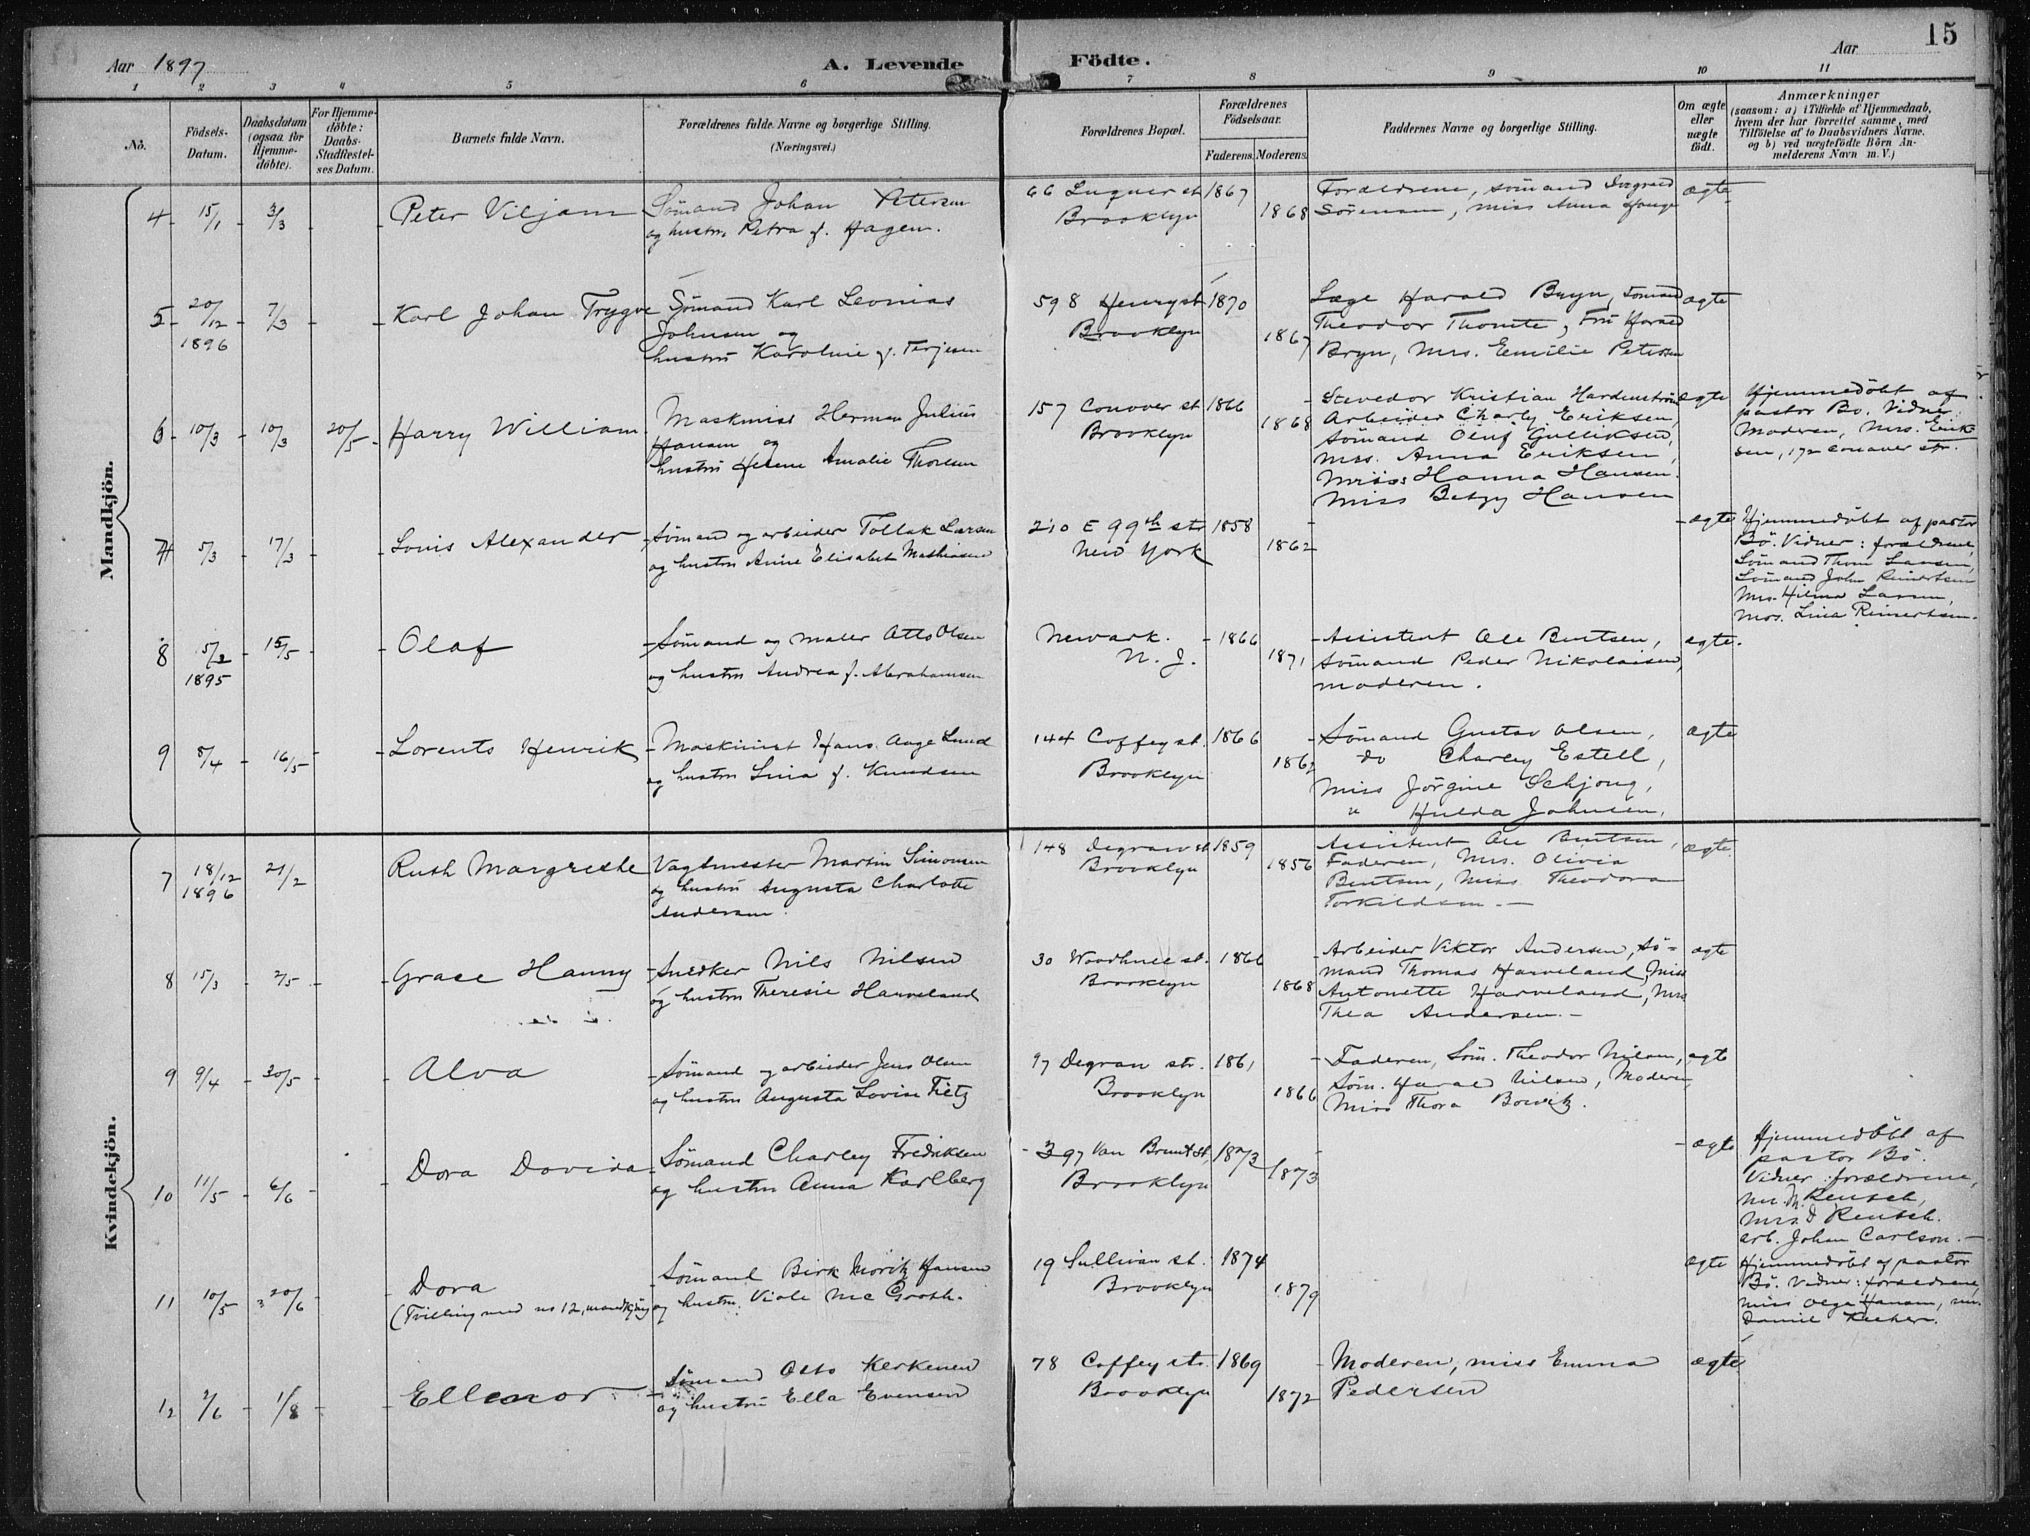 Aar 1897 A. Levende Födte. Aar 15
1 2 3 4 5 6 7 8 9 10 11
No.
Födsels-Datum.
Daabsdatum (ogsaa for Hjemme-döbte).
For Hjemme-döbte: Daabs-Stadfæstel-ses Datum.
Barnets fulde Navn.
Forældrenes fulde Navne og borgerlige Stilling. (Næringsvei.)
Forældrenes Bopæl.
Forældrenes Födselsaar.
Faderens. Moderens.
Faddernes Navne og borgerlige Stilling.
Om ægte eller uægte födt.
Anmærkninger
(saasom: a) i Tilfælde af Hjemmedaab, hvem der har forrettet samme, med Tilföielse af to Daabsvidners Navne. og b) ved uægtefödte Börn An-melderens Navn m. V.)
Mandkjön.
4 15/1 3/3 Peter Viljam
Sömand Johan Petersen
og hustru Petra f. Hagen.
66 Luquer st
Brooklyn
1867 1868
Forældrene, sömand
Sörensen, miss Anna
ægte
5 20/12 1896 7/3 Karl Johan Trygve
Sömand Karl Leonias
Johnsen og
hustru Karoline f. Terjesen
598 Henry st
Brooklyn
1870 1867
Læge Harald Bryn, Sömand
Theodor Thomte, Fru Harald
Bryn, Mrs. Emilie Petersen
ægte
6 10/3 10/3 20/5 Harry William
Maskinist Herman Julius
Hansen og
hustru Helene Amalie Thoresen
157 Conover st
Brooklyn
1866 1868
Stevedor Kristian
Arbeider Charly Eriksen,
Sömand Oluf Gulliksen,
Mrs. Anna Eriksen,
Miss Hanna Hansen.
Miss Betzy Hansen
ægte
Hjemmedöbt af
pastor Bö. Vidner:
Moderen, Mrs. Erik-
sen, 172 Conover str.
7 5/3 17/3 Louis Alexander
Sömand og arbeider Tollak Larsen
og hustru Anne Elisabet Mathiasen
210 E 99th str
New York
1858 1862
ægte
Hjemmedöbt af pastor
Bö. Vidner: forældrene,
Sömand Thom Larsen,
Sömand John Reinertsen
Mrs. Hilma Larsen,
Mrs. Lina Reinertsen.
8 15/2 1895 15/5 Olaf
Sömand og maler Otto Olsen
og hustru Andrea f. Abrahamsen
Newark.
N. J.
1866 1871
Assistent Ole Bentsen,
Sömand Peder Nikolaisen,
moderen.
ægte.
9 8/4 16/5 Lorents Henrik
Maskinist Hans Aage Lund
og hustru Lina f. Knudsen
144 Coffey st.
Brooklyn
1866 1862
Sömand Gustav Olsen,
do Charley Estell,
Miss Jörgine Schjong,
" Hulda Johnsen.
ægte
Kvindekjön.
7 18/12 1896 21/2 Ruth Margrethe
Vagtmester Martin Simonsen
og hustru Augusta Charlotte
Andersen.
148 Degraw st
Brooklyn
1859 1856
Assistent Ole Bentsen,
Faderen, Mrs. Olivia
Bentsen, Miss Theodora
Torkildsen.
ægte
8 15/3 2/5 Grace Hanny
Snedker Nils Nilsen
og hustru Theresie Harveland
30 Woodhull st.
Brooklyn
1866 1868
Arbeider Viktor Andersen, Sö-
mand Thomas Harveland, Miss
Antonette Harveland, Mrs
Thea Andersen.
ægte
9 9/4 30/5 Alva
Sömand og arbeider Jens Olsen
og hustru Augusta Lovise Tietz
97 Degraw str.
Brooklyn
1861 1866
Faderen, Söm. Theodor Nilsen,
Söm. Harald Nilsen, Moderen,
Miss Thora
ægte
10 11/5 6/6 Dora Davida
Sömand Charley Fredriksen
og hustru Anna Karlberg
397 Van Brunt st.
Brooklyn
1873 1873
ægte
Hjemmedöbt af
pastor Bö.
Vidner: forældrene,
Mr. Rensch,
Mrs. Rensch.
arb. Johan Carlson.
11 10/5 20/6 Dora
(Tvilling med no 12, mandkjön)
Sömand Birk Moritz Hansen
og hustru Viole Mc Grath.
19 Sullivan st.
Brooklyn
1874 1879
ægte
Hjemmedöbt af pastor
Bö. Vidner: forældrene,
miss Olga Hansen, mr.
Daniel
12 2/6 1/8 Ellenor
Sömand Otto Kerkenen
og hustru Ella Evensen
78 Coffey str.
Brooklyn
1869 1872
Moderen, miss Emma
Pedersen
ægte